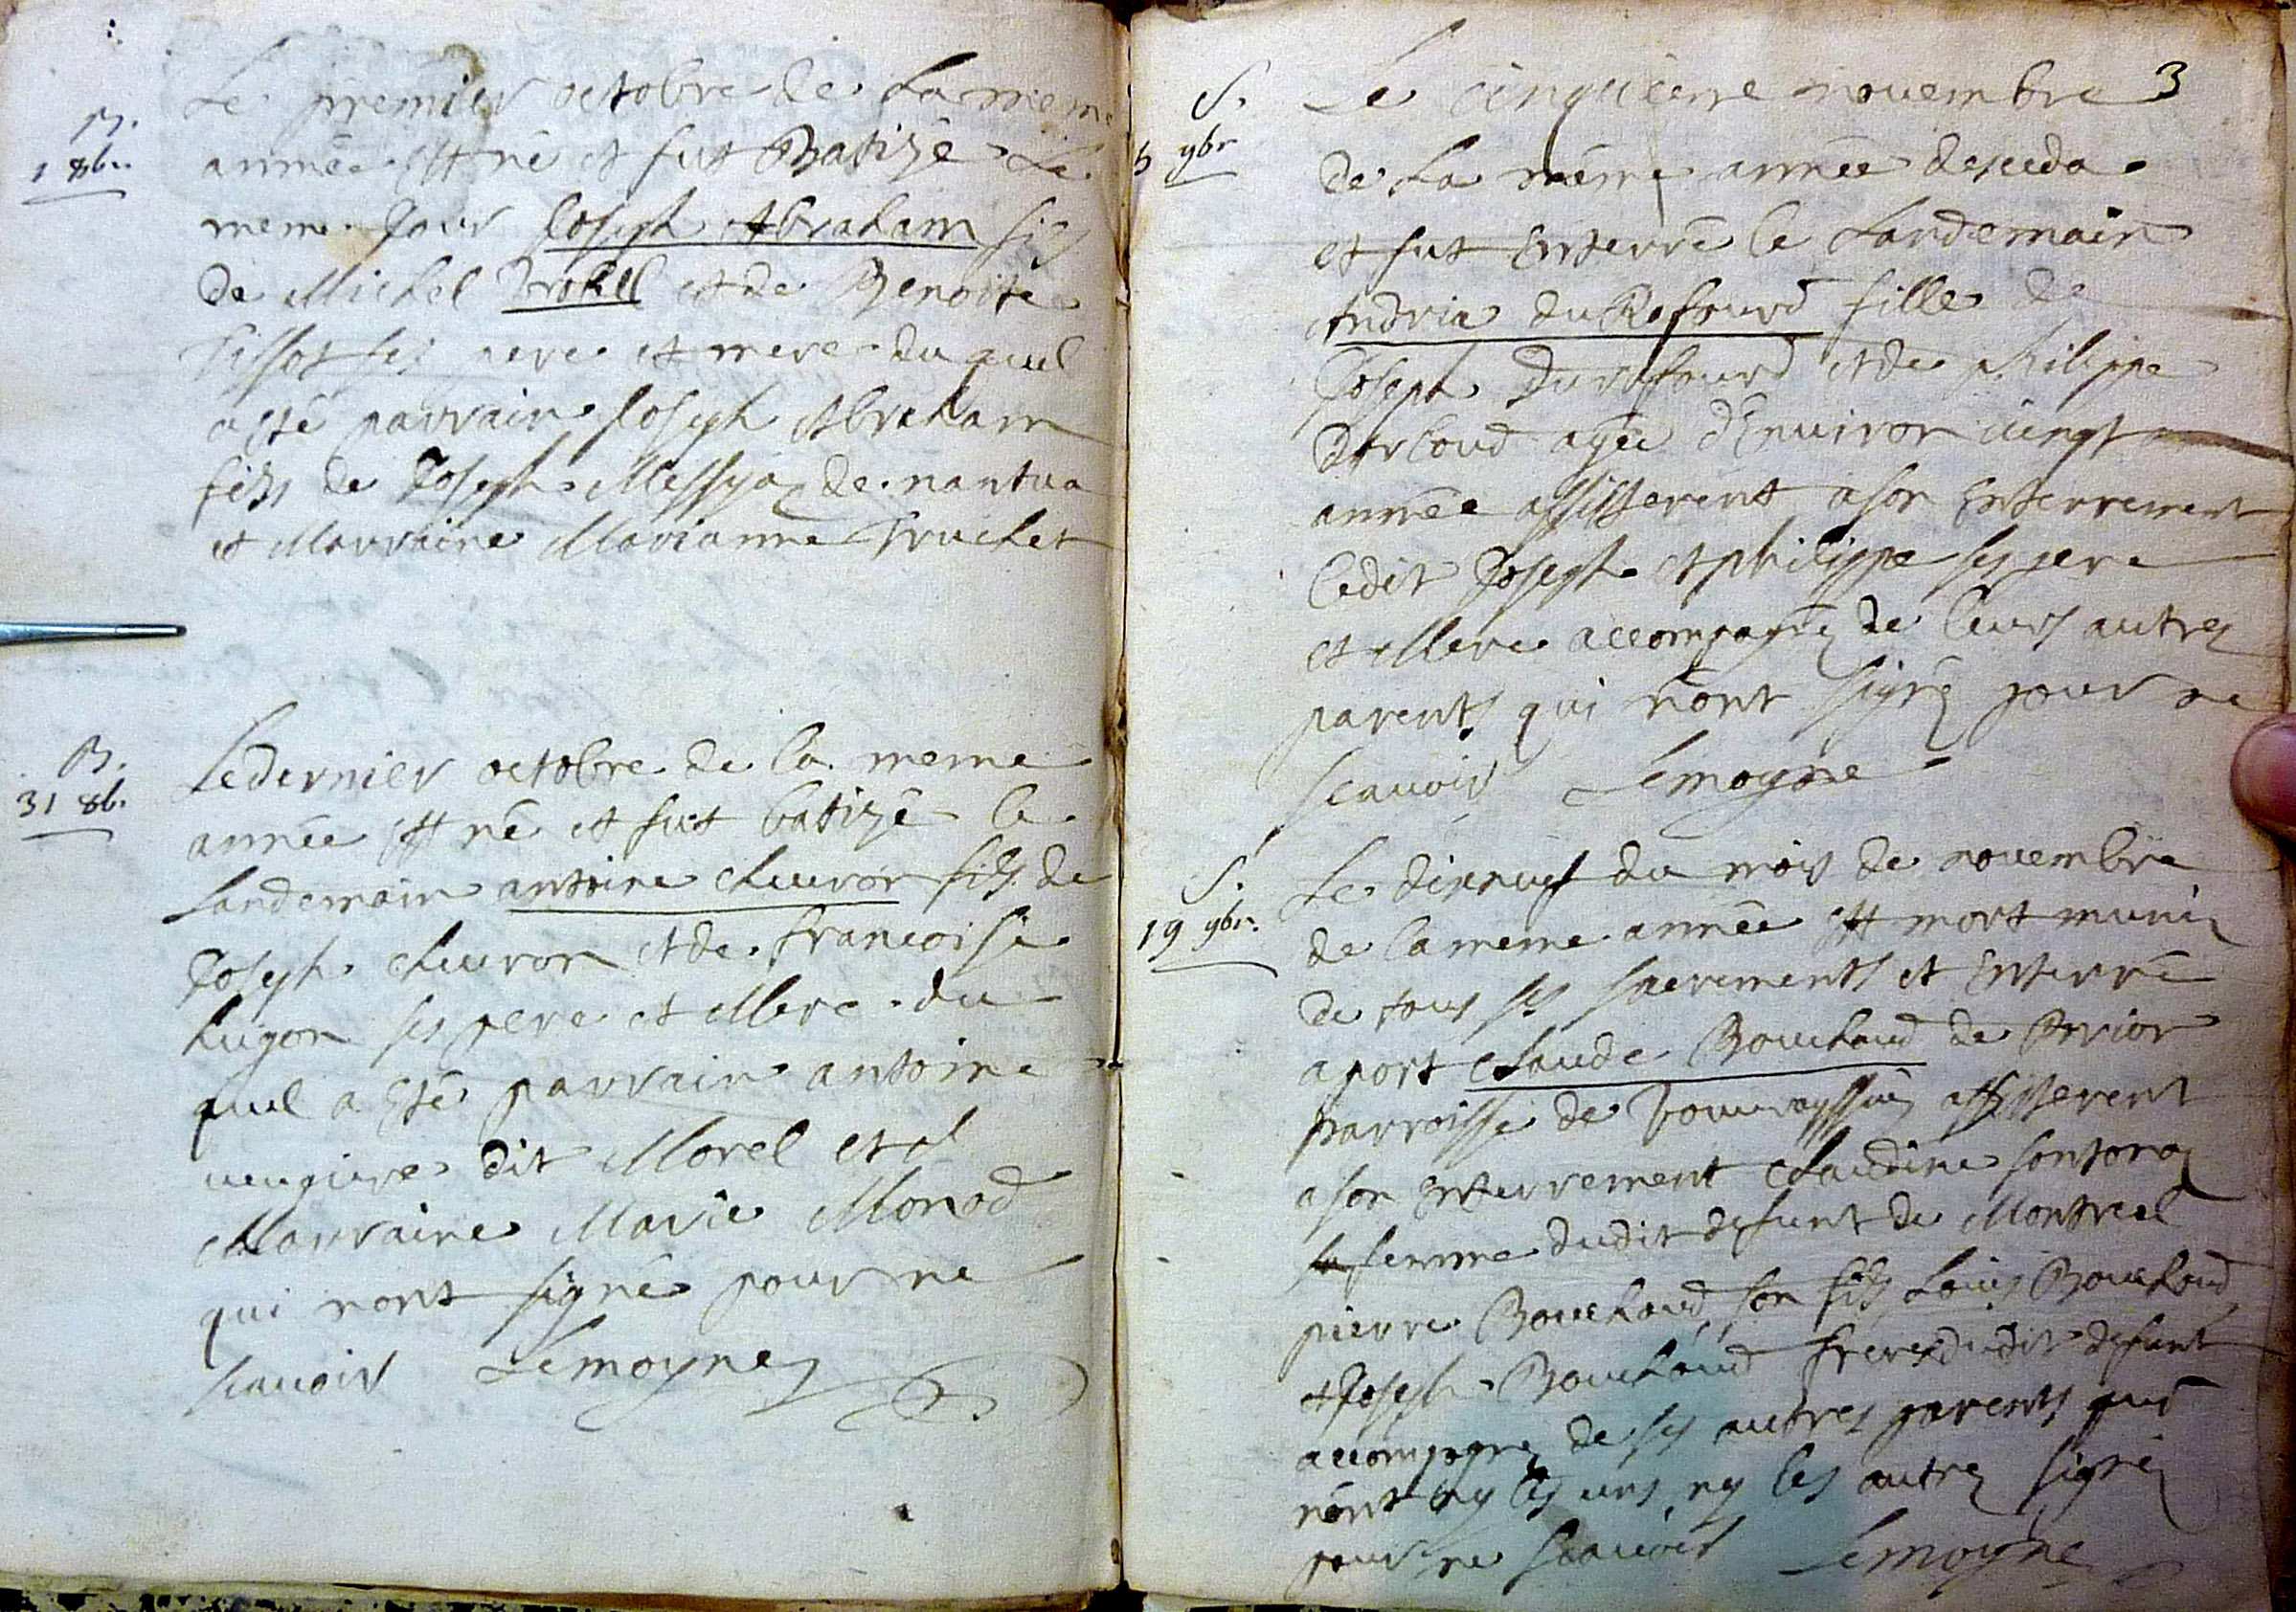 B.
1 8br.
Le premier octobre de La meme
année est né et fut Batizé Le
meme Jour Joseph Abraham fils
de Michel et de Benoite
Tissot ses pere et mere du quel
a esté parrain Joseph Abraham
fils de Joseph Messya de nantua
et Marraine Marianne Truchet
B.
31 8b.
Le dernier octobre de la meme
année est né et fut batizé le
Landemain antoine cheuron fils de
Joseph cheuron et de francoise
hugon ses pere et Mere du
quel a Eté parrain antoine
uengiere dit Morel et
Marraine Marie Monod
qui nont signé pour ne
scauoir Lemoyne
3
S.
5 9br
Le cinquieme nouembre
de La méme année deceda
et fut Enterré le Landemain
Andria du Rafourd fille de
Joseph Durafourd et de philippe
Darloud agée d'Enuiron uingt
année assisterent a son Enterrement
ledit Joseph et philippe ses pere
et Mere accompagnéz de leurs autres
parents qui nont signéz pour ne
scauoir Lemoyne
S.
19 9br.
Le dixneuf du mois de nouembre
de la meme année est mort muniz
de tous ses sacrements et Enterré
a port claude Bouchaud de Brion
parroisse de assisterent
a son Enterrement claudine sontonaz
femme dudit defunt de Montreal
pierre Bouchaud son fils Louis Bouchaud
et Joseph Bouchaud freres dudit defunt
accompagnez de ses autres parents qui
nont ny les uns ny les autres signéz
pour ne scauoir Lemoyne